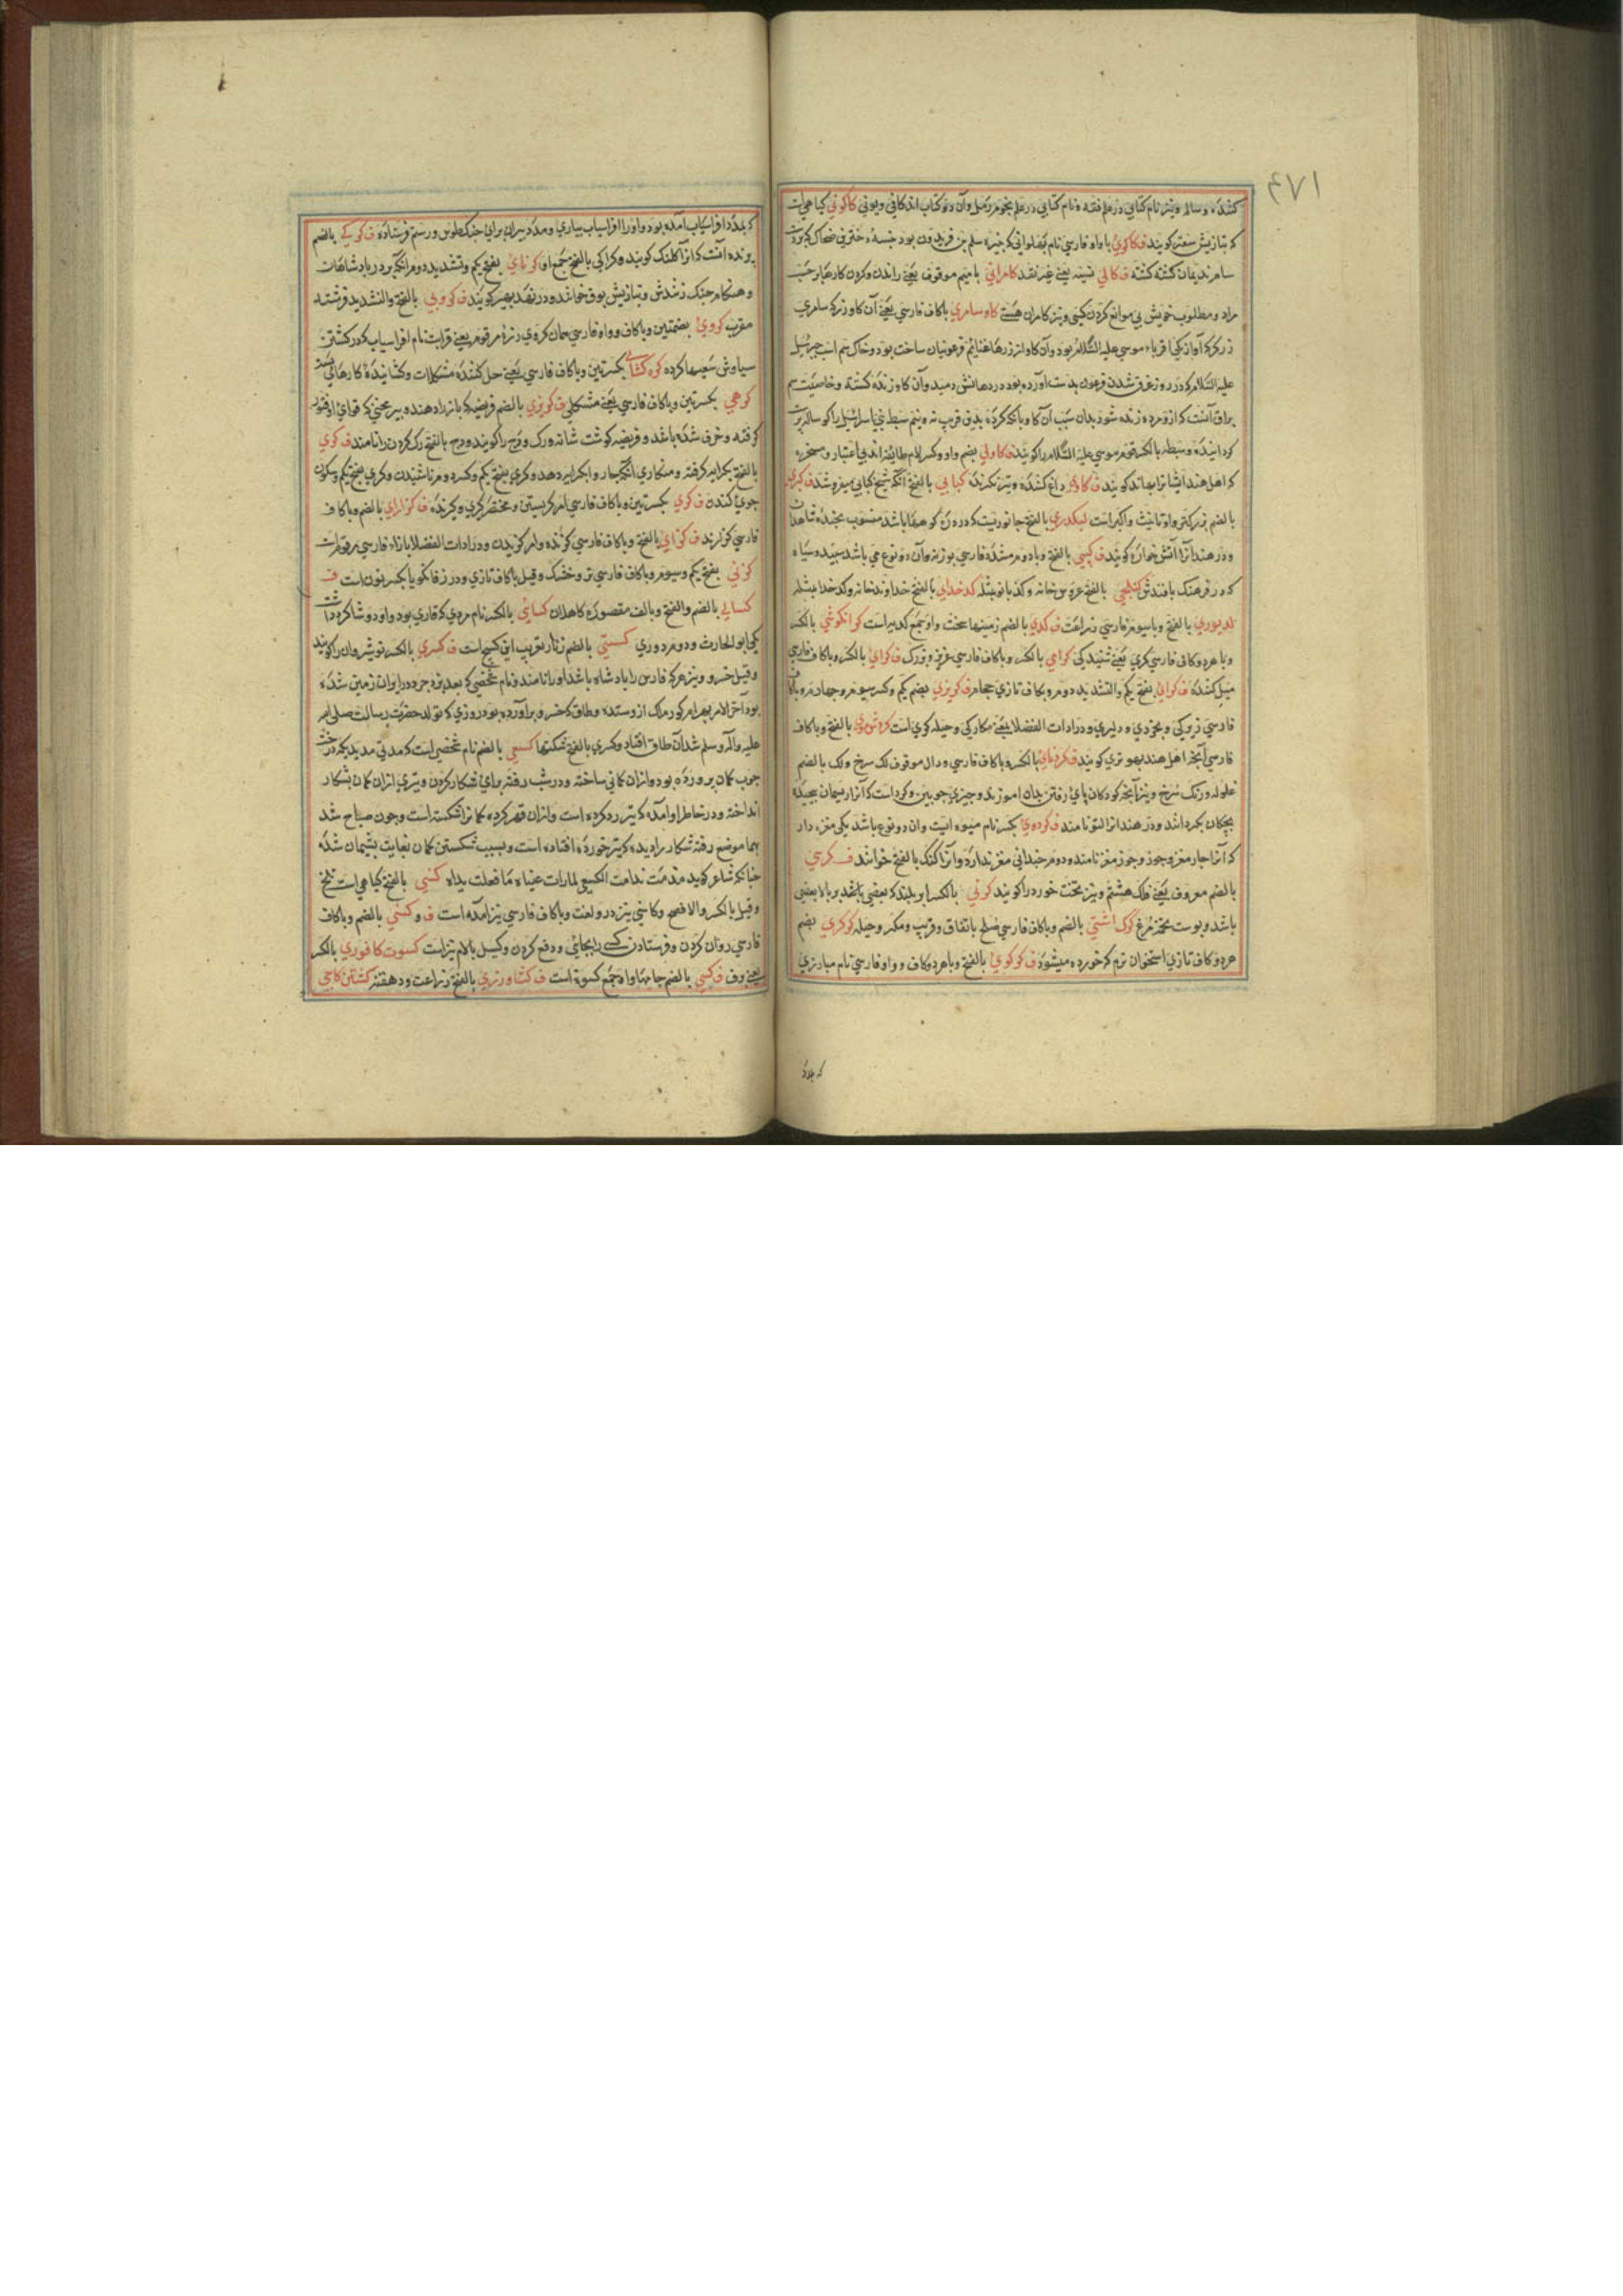 ١٧٤
کننده و ساله و نیز نام کتابی در علم فقه و نام کتابی در علم نجوم و رمل و آن دو کتاب اند کافی و یونی کاکونی کیاهی است
که بتازیش سعتر کویند ف کاکوی با واو فارسی نام پهلوانی که نبیره سلم بن فریدون بود نبسه دختری ضحاک که بر دست
سام نریمان کشته کشته ف کالی نسیه یعنی غیر نقد کامرانی با میم موقوف یعنی راندن و کردن کارها بر حسب
مراد و مطلوب خویش بی موانع کردن کیتی و نیز کامران هستی کاو سامری باکاف فارسی یعنی آن کاو زر که سامری
زرکر که از اقرباء موسی علیه السلام بود و آن کاو از زرها غنایم فرعونیان ساخت بود و خاک سم اسب جبرئیل
علیه السلام که در روز غرق شدن فرعون بدست آورده بود در دهانش دمید و آن کاو زنده کشته و خاصیت سم
براق آنست که از و مرده زنده شود بدان سبب آن کاو بانک کرده بدین فریب نه و نیم سبط بنی اسرائیل را کوساله پرست
کردانیده و سبط بالکسر قوم موسی علیه السلام را کویند ف کاولی بضم واو و کسر لام طایفه اند بی اعتبار و مسخره
که اهل هند ایشانرا بهاند کویند ف کاوی داغ کننده و نیز نکرنده کبابی بالفتح آنکه سیخ کبابی میفروشد ف کبری
بالضم بزرکتر و او تانیث و اکبر است لبکدری بالفتح جانوریست که در دره کوهها باشد منسوب بجنبده شاهدان
و در هند آنرا آتش خواره کویند ف کپی بالفتح و با دوم مشدده فارسی بوزنه و آن دو نوع می باشد سپید و سیاه
که در فرهنک بافندش کتلجی بالفتح عروس خانه و کدبانو مثله کدخدای بالفتح خداوند خانه و کدخدا مثله
لدیوری بالفتح و با سیوم فارسی زراعت ف کدی بالضم زمینها سخت و او جمع کدیه است کرانکوشی بالکسر
و با هر دو کاف فارسی کری یعنی شنیدکی کرامی بالکسر و باکاف فارسی عزیز و بزرک ف کرای بالکسر و باکاف فارسی
میل کننده ف کرائی بفتح یکم و التشدید دوم و بکاف تازی حجام ف کربزی بضم یکم و کسر سیوم و چهارم و باکاف
فارسی زیرکی و بخردی و دلیری و در ادات الفضلا یعنی مکارکی و حیله کری است کردنموی بالفتح و باکاف
فارسی آنجه اهل هند بهونری کویند ف کردنای بالکسر و باکاف فارسی و دال موقوف لک سرخ و لک بالضم
غلوله و رنک سرخ و نیز آنجه کودکان پای رفتن بدان اموزند و چیزی چوبین و کرد است که آنرا ریسمان پیچیده
بچکان بکردانند و در هند انرا لتو نامند ف کردوی بکسر نام میوه ایست و ان دو نوع باشد یکی مغزه دار
که آنرا چار مغز و جوز و جوز مغز نامند و دوم جندانی مغز ندارد و آنرا کتک بالفتح خوانند ف کرسی
بالضم معروف یعنی فلک هشتم و نیز تخت خورد را کویند کرفی بالکسر ابر بلند که بعضی باشد بر بالا بعضی
باشد و پوست تخم مرغ کرک اشتی بالضم و باکاف فارسی صلح باتفاق و فریب و مکر و حیله کرکری بضم
هر دو کاف تازی استخوان نرم که خورده میشود ف کرکوی بالفتح و با هر دو کاف و واو فارسی نام مبارزی
که بمدد
که بمدد افراسیاب آمده بود و او را افراسیاب بیاری و مدد پیران برای جنک طوس و رستم فرستاده ف کرکی بالضم
پرنده آنست که انرا کلنک کویند و کراکی بالفتح جمع او کرنای بفتح یکم و تشدید دوم آنکه بر در پادشاهان
و هنکام جنک زنندش و بتازیش بوق خوانند و در نفد بهیر کویند ف کروبی بالفتح و التشدید فرشته
مقرب کروی بضمتین و باکاف و واو فارسی همان کروی زره مرقوم یعنی قرابت نام افراسیاب که در کشتن
سیاوش سعیها کرده کره کشای بکسرتین و باکاف فارسی یعنی حل کننده مشکلات و کشاینده کارهائی بسته
کرهی بکسرتین و باکاف فارسی یعنی مشکلی ف کروزی بالضم فریضه که باز را دهند و پیر یعنی که قوای او فتور
کرفته و خرف شده باشد و فریضه کوشت شانه و رک و دج را کویند و دج بالفتح رک کردن را نامند ف کری
بالفتح بکرایه کرفته و مکاری آنکه چهار وا بکرایه دهد و کری بفتح یکم و کسر دوم تراشیدن و کری بفتح یکم و سکون
جوی کندن ف کری بکسرتین و باکاف فارسی امر کریستن و مختصر کری و کرنده ف کزارای بالضم و باکاف
فارسی کزارند ف کزای بالفتح و باکاف فارسی کزنده و امر کزیدن و در ادات الفضلا با زاء فارسی مرقوم است
کزنی بفتح یکم و سیوم و باکاف فارسی تر و خشک و قیل باکاف تازی و در زفانکویا بکسر نون است ف
کسالی بالضم و الفتح و بالف مقصوره کاهلان کسائی بالکسر نام مردی که قاری بود و او دو شاکرد داشت
یکی ابو الحارث و دوم دوری کستی بالضم زنار تعریب این کستیج است ف کسری بالکسر نوشیروان را کویند
و قیل خسرو و نیز هر که فارس را پادشاه باشد او را نامند و نام شخصی که بعد یزدجرد در ایران زمین شده
بود آخر الامر بهرام کور ملک از و ستده و طاق که خسرو بر آورده بود روزی که تولد حضرت رسالت صلی الله
علیه و آله و سلم شد آن طاق افتاد و کسری بالفتح شکستها کسعی بالضم نام شخصی است که مدتی مدید یک درخت
چوب کمان پرورده بود و ازان کمانی ساخته و در شب رفته برای شکار کردن و تیری ازان کمان بشکار
انداخته و در خاطر او آمده که تیر رد کرده است و ازان قهر کرده کمانرا شکسته است و چون صباح شد
بهما موضع رفته شکار را دیده که تیر خورده افتاده است و بسبب شکستن کمان بغایت پشیمان شده
چنانکه شاعر کوید ندمت ندامت الکسعی لما رات عیناه ما فعلت یداه کسنی بالفتح کیاهی است تلخ
و قیل بالکسر و الافصح و کاسنی نیز درو لغت و باکاف فارسی نیز امده است ف و کسی بالضم و باکاف
فارسی روان کردن و فرستادن کسی را بجائی و دفع کردن و کسیل بالام نیز است کسوت کافوری بالکسر
یعنی برف ف کسی بالضم جامها و او جمع کسوة است ف کشاورزی بالفتح زراعت و دهقنه کشتن کاجی